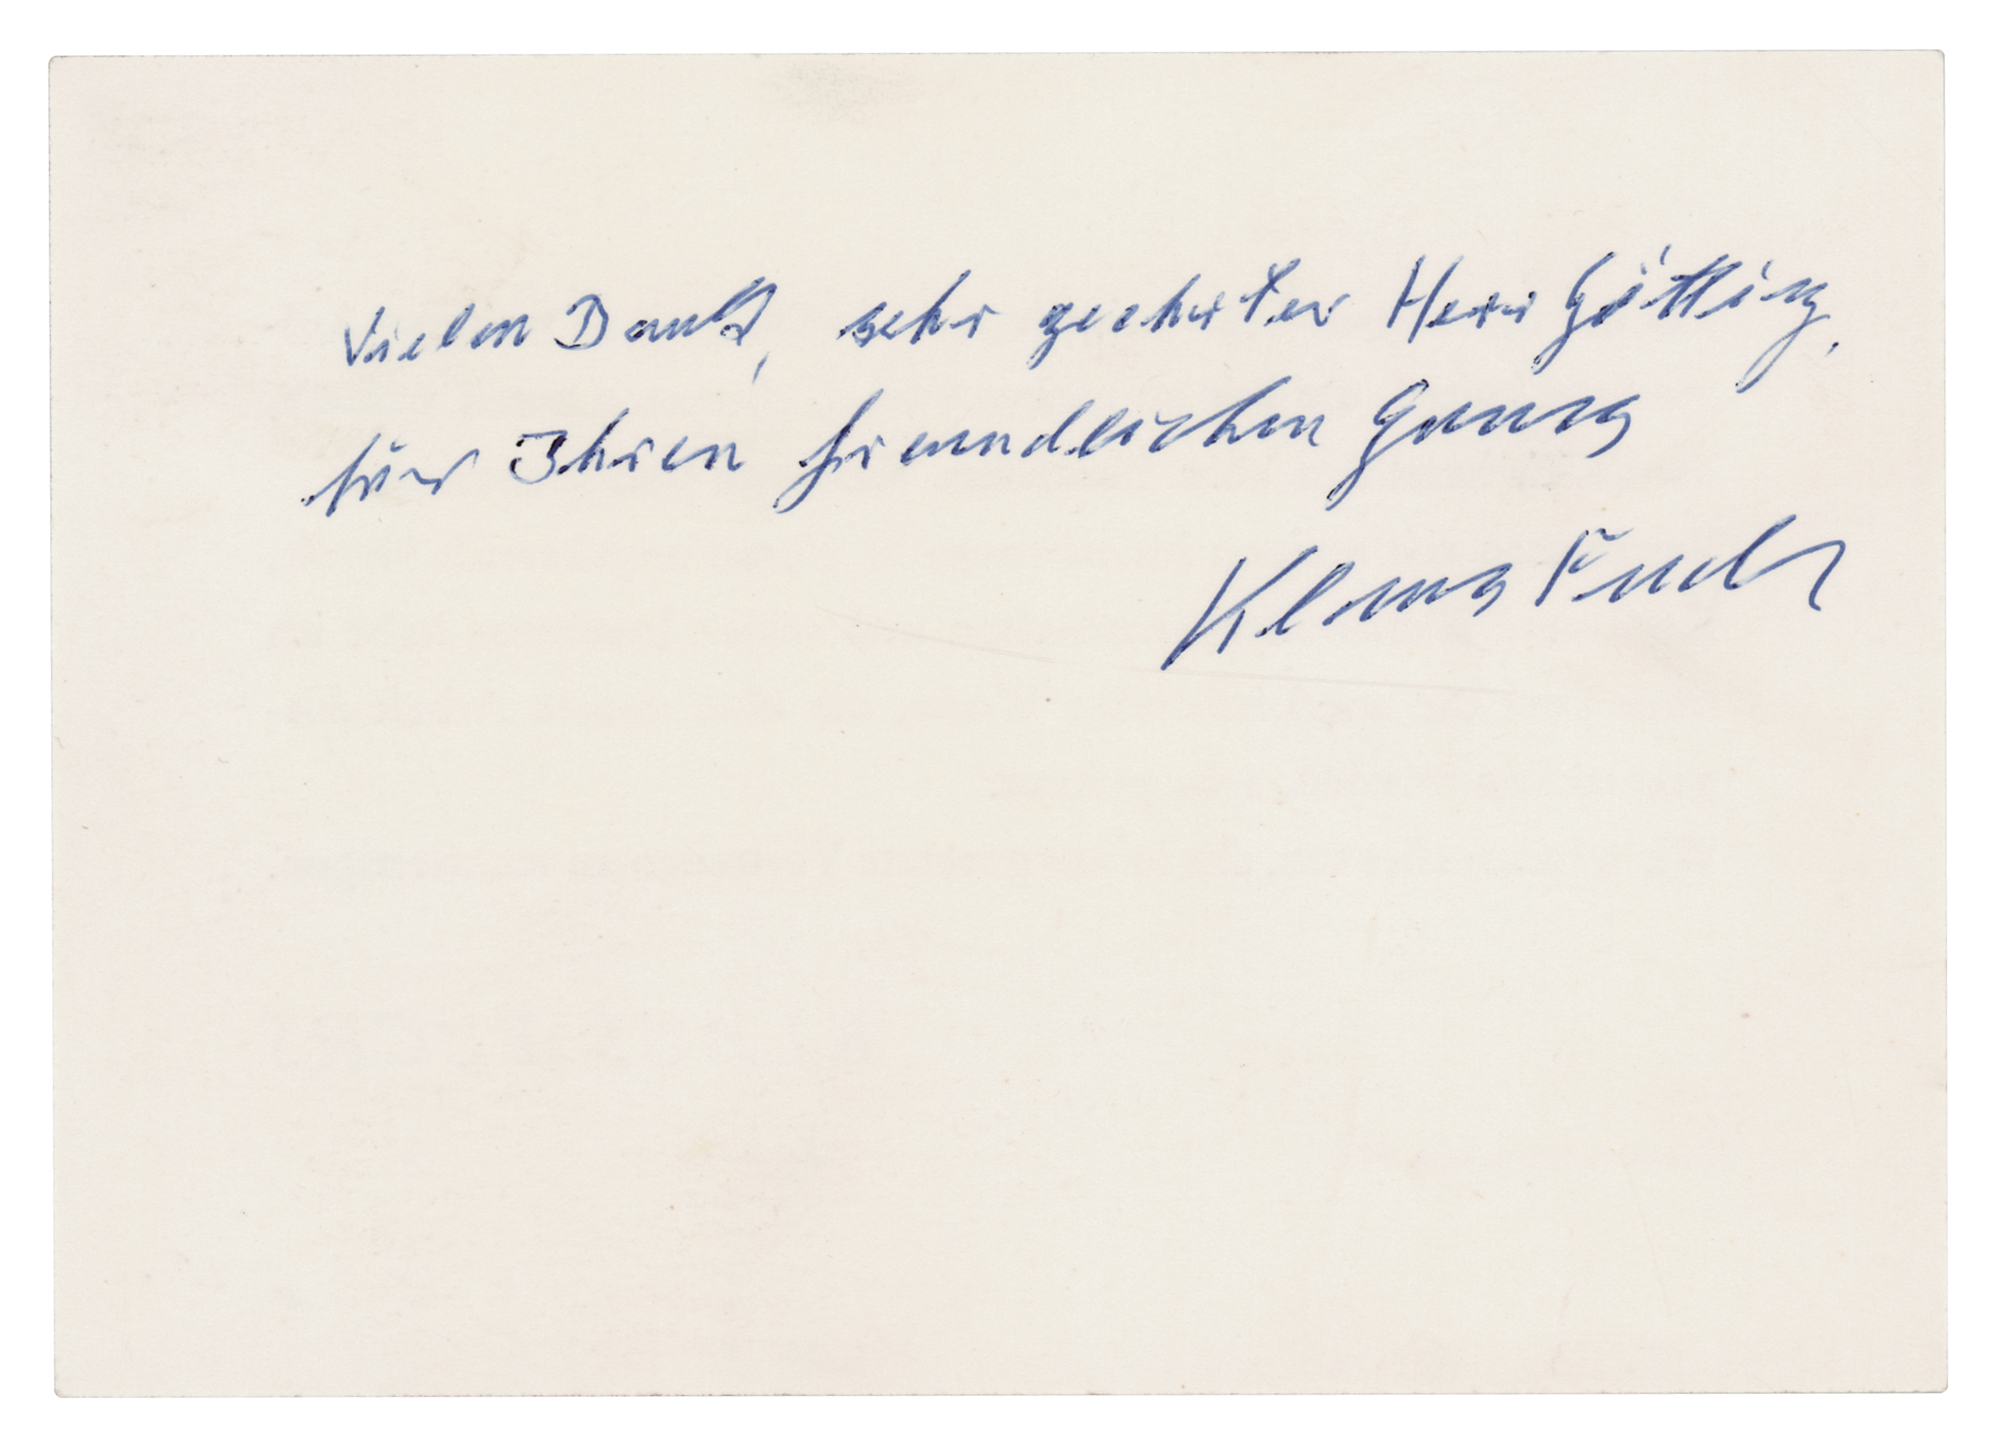 Vielen Dank, sehr geehrter Herr Götting,
für Ihren freundlichen Gruss
Klaus Fuchs